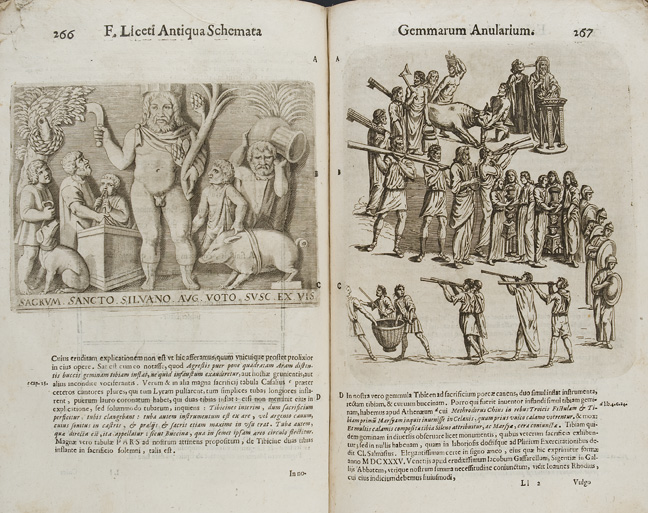 266
F. Liceti Antiqua Schemata
A
B
C
SACRVM. SANCTO. SILVANO. AVG. VOTO. SVSC. EX VIS
Cuius eruditam explicationem non est vt hic afferamus, quum vnicuique prostet prolixior
in eius opere. Sat est cum eo notasse, quod Agrestis puer pone quadratam Aram disten-
tis buccis geminam tibiam inflat,
alius incondite vociferantis. Verum & in alia magna sacrificij tabula Casalius præter
cap. 15.
ceteros cantores plures, qui tum Lyram pulsarent, tum simplices tubas longiores infla-
rent, puerum lauro coronatum habet, qui duas tibias inflat: etsi non meminit eius in
D
explicatione, sed solummodo tubarum, inquiens: Tibicines interim, dum sacrificium
perficitur tubis clangebant: tuba autem instrumentum est ex ære, vel argento cauum,
cuius sonitus in castris, & prælijs, & sacris etiam maxime in vsu erat. Tuba autem,
quæ directa est, ita appellatur; sicut buccina, quæ in semet ipsam æreo circulo flectitur.
Magnæ vero tabulæ PARS ad nostrum attinens propositum, de Tibicine duas tibias
inflante in sacrificio solenni, talis est.
In no-
Gemmarum Anularium.
267
A
B
C
D
In nostra vero gemmula Tibicen ad sacrificium pone aræ canens, duo simul inflat instrumenta,
rectam tibiam, & curuum buccinam. Porro qui fuerit inuentor inflandi simul tibiam gemi-
nam, habemus apud Athenæum cui Methrodorus Chius in rebus Troicis Fistulam & Ti-
biam primum Marsyam ingeni inuenisse in Celænis, quum prius vnico calamo vterentur, &
gem-
dem geminam in diuersis obseruare licet monumentis, quibus veterum sacrificia exhiben-
tur, sed in nulla habemus, quam in laboriosis doctisque ad Plinium Exercitationibus de-
dit Cl. Salmasius. Elegantissimum certe in signo æneo, eius quæ hic exprimitur formæ
anno MDCXXXV. Venetijs apud eruditissimum Iacobum Gaffarellum, Sigentiæ in Gal-
lijs Abbatem, vtrique nostrum summa necessitudine coniunctum, vidit Ioannes Rhodius,
cui eius indicium debemus huiusmodi,
Ll 2
Vulgo